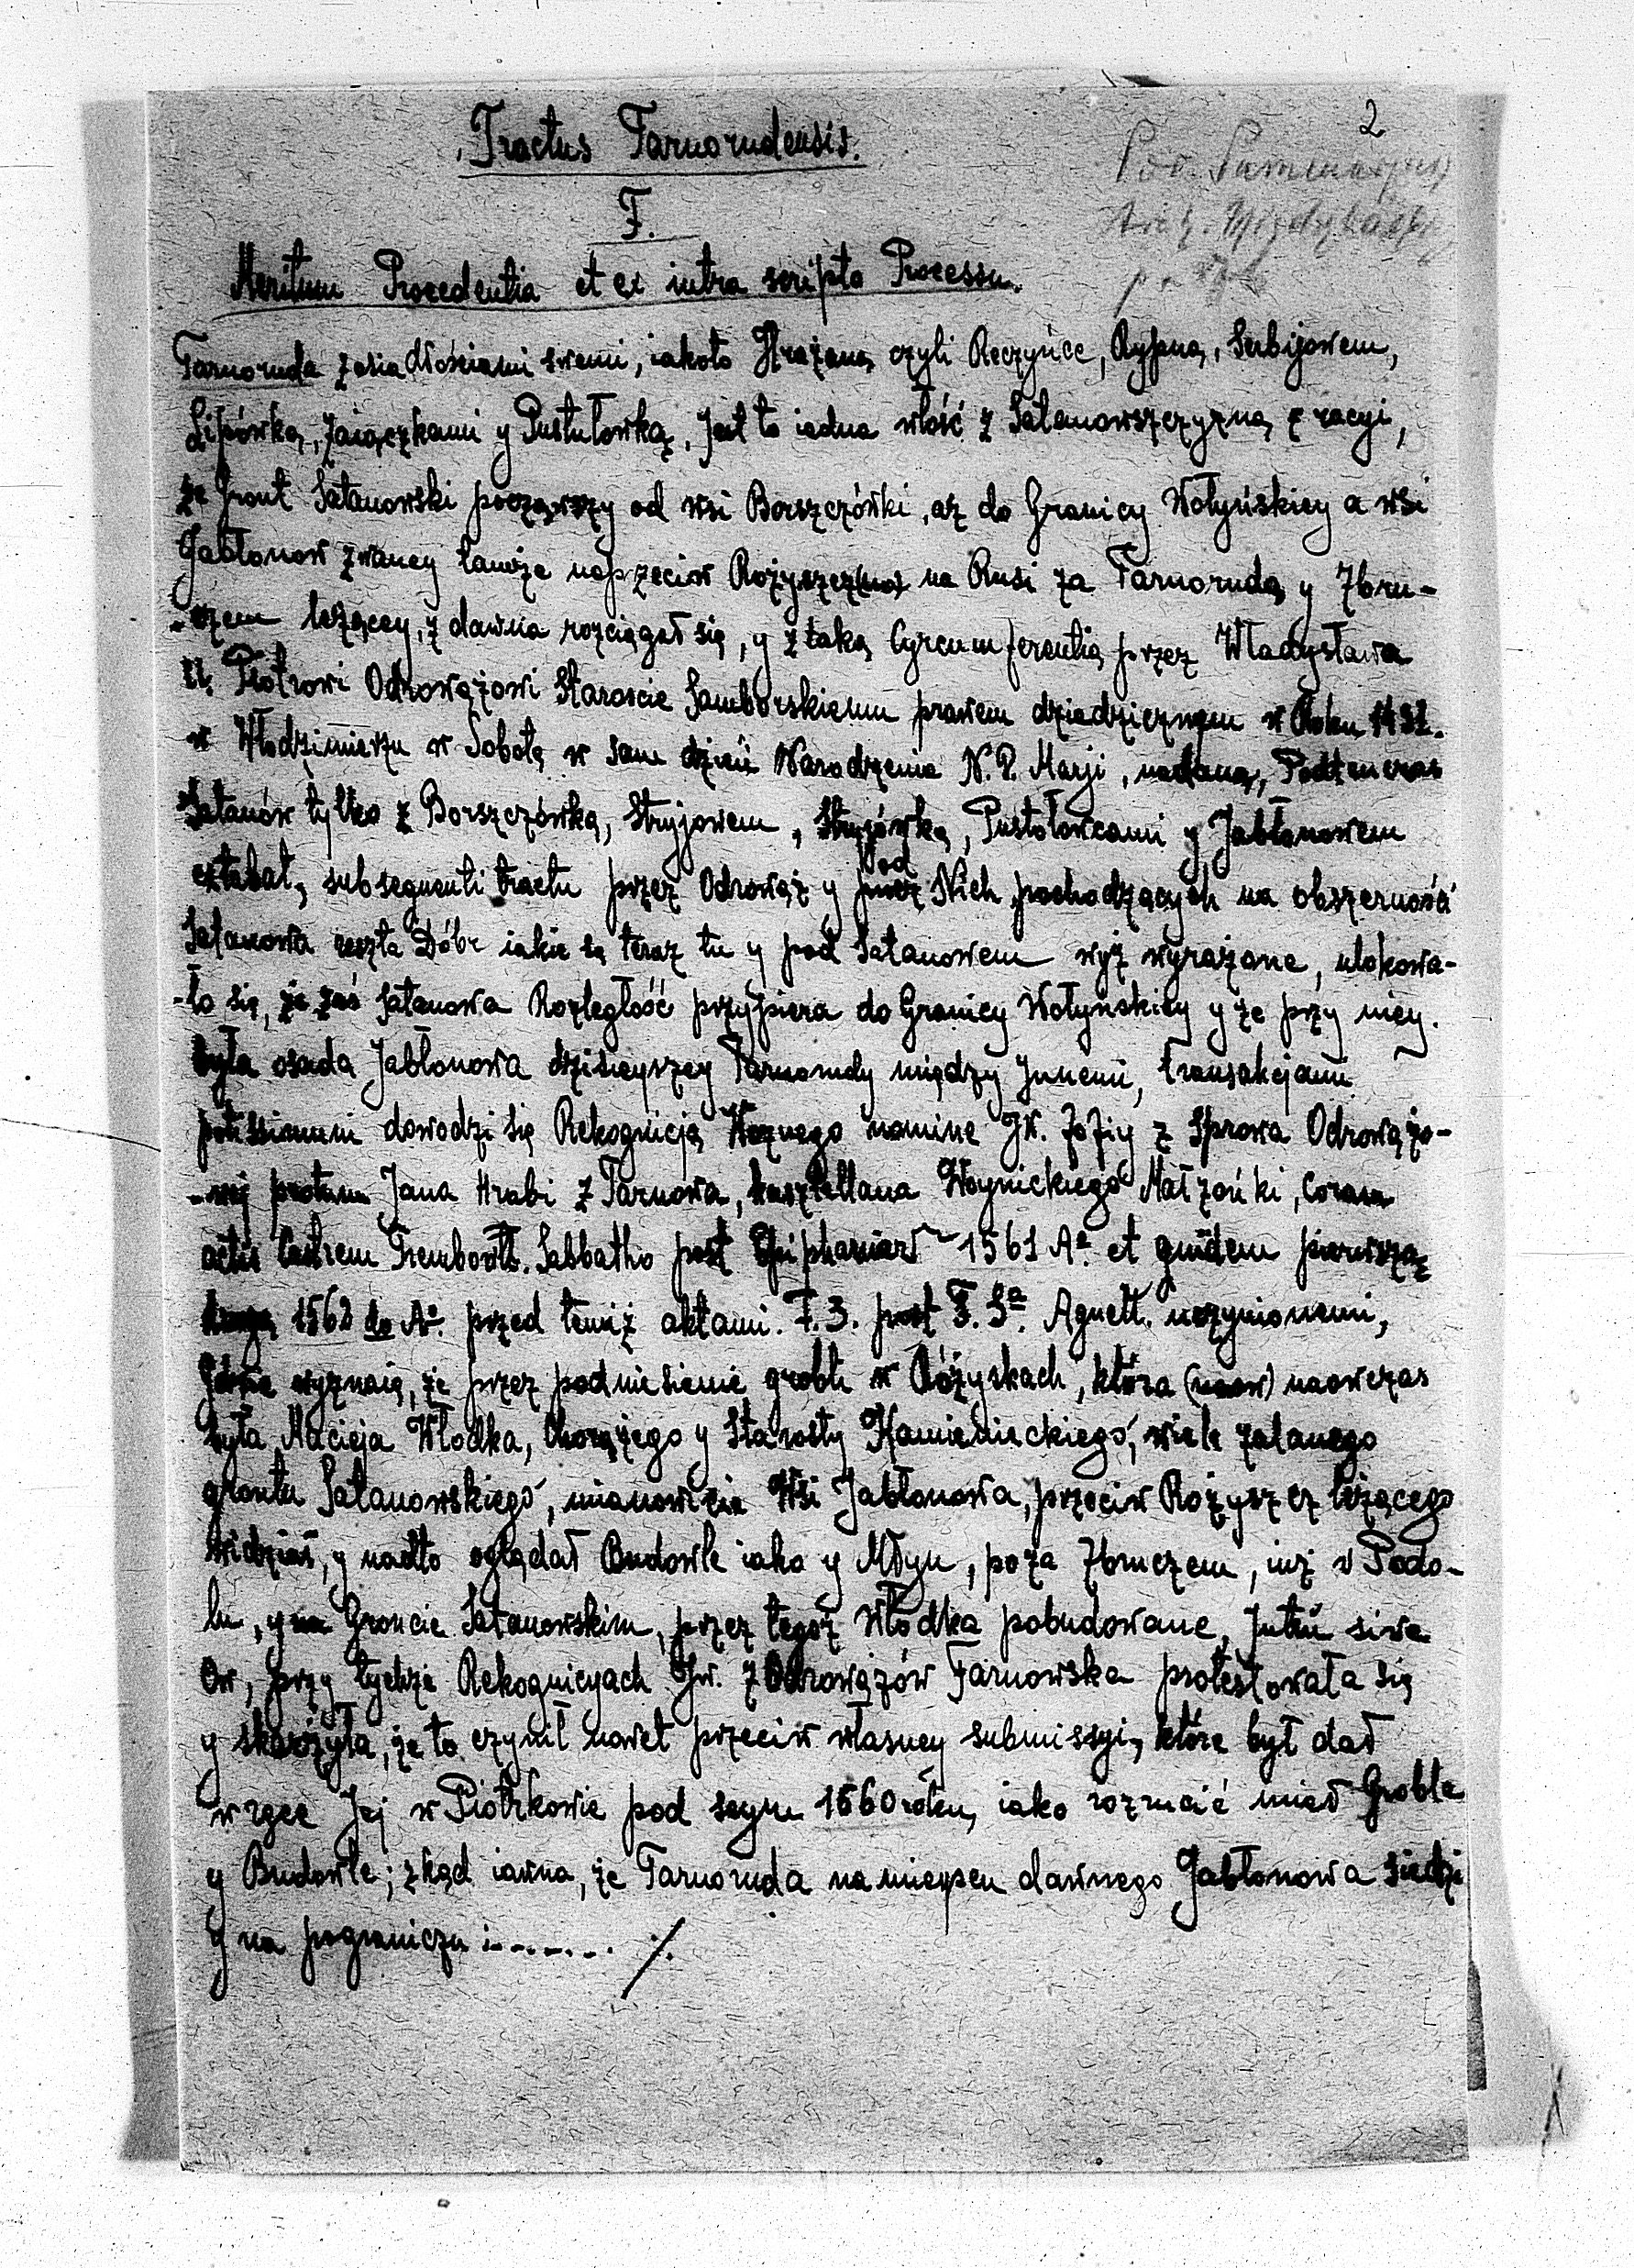 2
Tractus Tarnorudensis.
F.
Meritum Procedentia et ex intra scripto Processu.
Tarnoruda z osiadłościami swemi, iakoto Hrażaną czyli Reczyńce, Serbijowem,
Lipówką, Zaiączkami y Pustułowką, Jest to iedna włość z Satanowszczyzną z racyi,
że Gront Satanowski począwszy od wsi Borszczówki, aż do Granicy Wołyńskiey a wsi
Jabłonow zwaney tamże naprzeciw na Rusi za Tarnorudą y Zbru-
-czem leżącey, z dawna rozciągał się, y z taką Cyrcumferentią przez Władysława
II. Piotrowi Odrowążowi Staroscie Samborskiemu prawem dziedzicznem w Roku
w Włodzimierzu w Sobotę w sam dzień Narodzenia N. P. Marji, nadaną, Podtenczas
Satanów tylko z Borszczówką, Stryjowem, Stryjówką, Pustołowcami y Jabłonowem
extabat, subsequenti tractu przez Odrowąż y od Nich pochodzących na obszerności
Satanowa reszta Dóbr iakie są teraz tu y pod Satanowem wyż wyrażone, ulokowa-
-ło się, że zaś Satanowa Rozległość przypiera do Granicy Wołyńskiey y że przy niey
była osada Jabłonowa dzisieyszey Tarnorudy między Innemi, transakcjami
potissimum dowodzi się Rekognicją Woznego nomine JW. Zofiy z Sprowa Odrowążo-
-wej Jana Hrabi z Tarnowa, kasztellana Woynickiego Małżonki, Coram
actis Castrem Trembowlt. Sabbatho post 1561 Aº et quidem pierwszą
1563 do Aº. przed temiż aktami. F. 3. post F. Sª. Agnett. uczynionemi,
wyznaią, że przez podniesienie grobli w Różyskach, która naowczas
była Macieja Włodka, Chorążego y Starosty Kamienieckiego, wiele zalanego
grontu Satanowskiego, mianowicie Wsi Jabłonowa, przeciw Rożyszcz leżącego
widział, y nadto oglądał Budowle iako y Młyn, poza Zbruczem, iuż w Podo-
lu, y na Groncie Satanowskim, przez tegoż Włodka pobudowane,
przy tychże Rekognicyach JW. z Odrowązów Tarnowska protestowała się
y skarżyła, że to czynił nawet przeciw własney submissyi, które był dał
w ręce Jej w Piotrkowie pod seym 1560 roku, iako rozrucić miał Groble
y Budowle; zkąd iawna, że Tarnoruda na mieyscu dawnego Jabłonowa siedzi
y na pograniczu i....... ./.